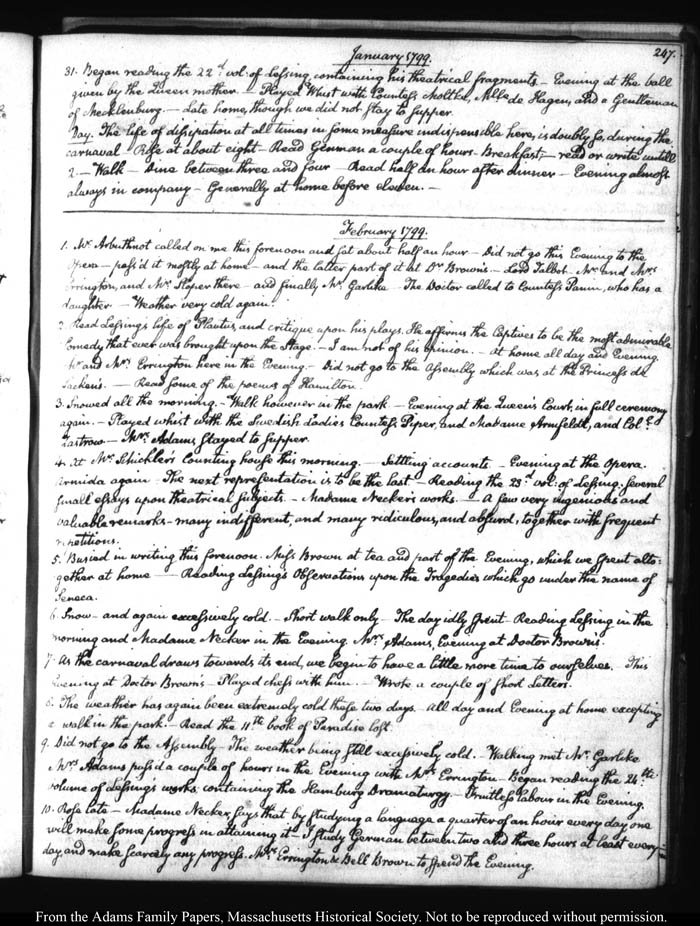 247.
January 1799.
31. Began reading the 22d. vol: of Lessing, containing his theatrical fragments — Evening at the ball
given by the Queen mother. — Played Whist with Countess Moltke, Mlle de Hagen, and a Gentleman
of Mecklenburg. — Late home, though we did not stay to supper.
Day. The life of dissipation at all times in some measure indispensible here, is doubly so, during the
carnaval — Rise at about eight — Read German a couple of hours — Breakfast, — read or write untill
2. — Walk — Dine between three and four — Read half an hour after dinner — Evening almost
always in company — Generally at home before eleven. —
February 1799.
1. Mr. Arbuthnot called on me this forenoon and sat about half an hour — Did not go this Evening to the
Opera — pass'd it mostly at home — and the latter part of it at Dr. Brown's — Lord Talbot. Mr. and Mrs.
Errington, and Mr. Sloper there — and finally Mr. Garlike — The Doctor called to Countess Panin, who has a
daughter — Weather very cold again.
2. Read Lessings life of Plautus, and critique upon his plays. He affirms the Captives to be the most admirable
Comedy that ever was brought upon the Stage — I am not of his opinion. — At home all day and Evening.
Mr. and Mrs. Errington here in the Evening. — Did not go to the Assembly which was at the Princess de
Sacken's. — Read some of the poems of Hamilton.
3. Snowed all the morning. — Walk however in the park — Evening at the Queen's Court, in full ceremony
again. — Played whist with the Swedish Ladies Countess Piper, and Madame Armfeldt, and Coll:
Zastrow — Mrs. Adams stayed to supper.
4. At Mr. Schickler's Counting house this morning. — Settling accounts. — Evening at the Opera.
Armida again. The next representation is to be the last — Reading the 23d. vol: of Lessing. Several
small essays upon theatrical subjects — Madame Necker's works. — A few very ingenious and
valuable remarks — many indifferent, and many ridiculous, and absurd, together with frequent
repetitions.
5. Busied in writing this forenoon. Miss Brown at tea and part of the Evening, which we spent alto-
gether at home — Reading Lessings Observations upon the Tragedies which go under the name of
Seneca.
6. Snow — and again excessively cold. — Short walk only — The day idly spent — Reading Lessing in the
morning and Madame Necker in the Evening. Mrs. Adams, Evening at Doctor Brown's.
7. As the carnaval draws towards its end, we begin to have a little more time to ourselves. — This
Evening at Doctor Brown's — Played chess with him. — Wrote a couple of short Letters.
8. The weather has again been extremely cold these two days. All day and Evening at home excepting
a walk in the park — Read the 11th. book of Paradise lost.
9. Did not go to the Assembly — The weather being still excessively cold. — Walking met Mr. Garlike
Mrs. Adams pass'd a couple of hours in the Evening with Mrs. Errington — Began reading the 24th:
volume of Lessings works, containing the Hamburg Dramaturgy — Fruitless labour in the Evening.
10. Rose late — Madame Necker says that by studying a language a quarter of an hour every day one
will make some progress in attaining it — I study German between two and three hours at least every
day, and make scarcely any progress. Mrs. Errington & Bell Brown to spend the Evening.
From the Adams Family Papers, Massachusetts Historical Society. Not to be reproduced without permission.